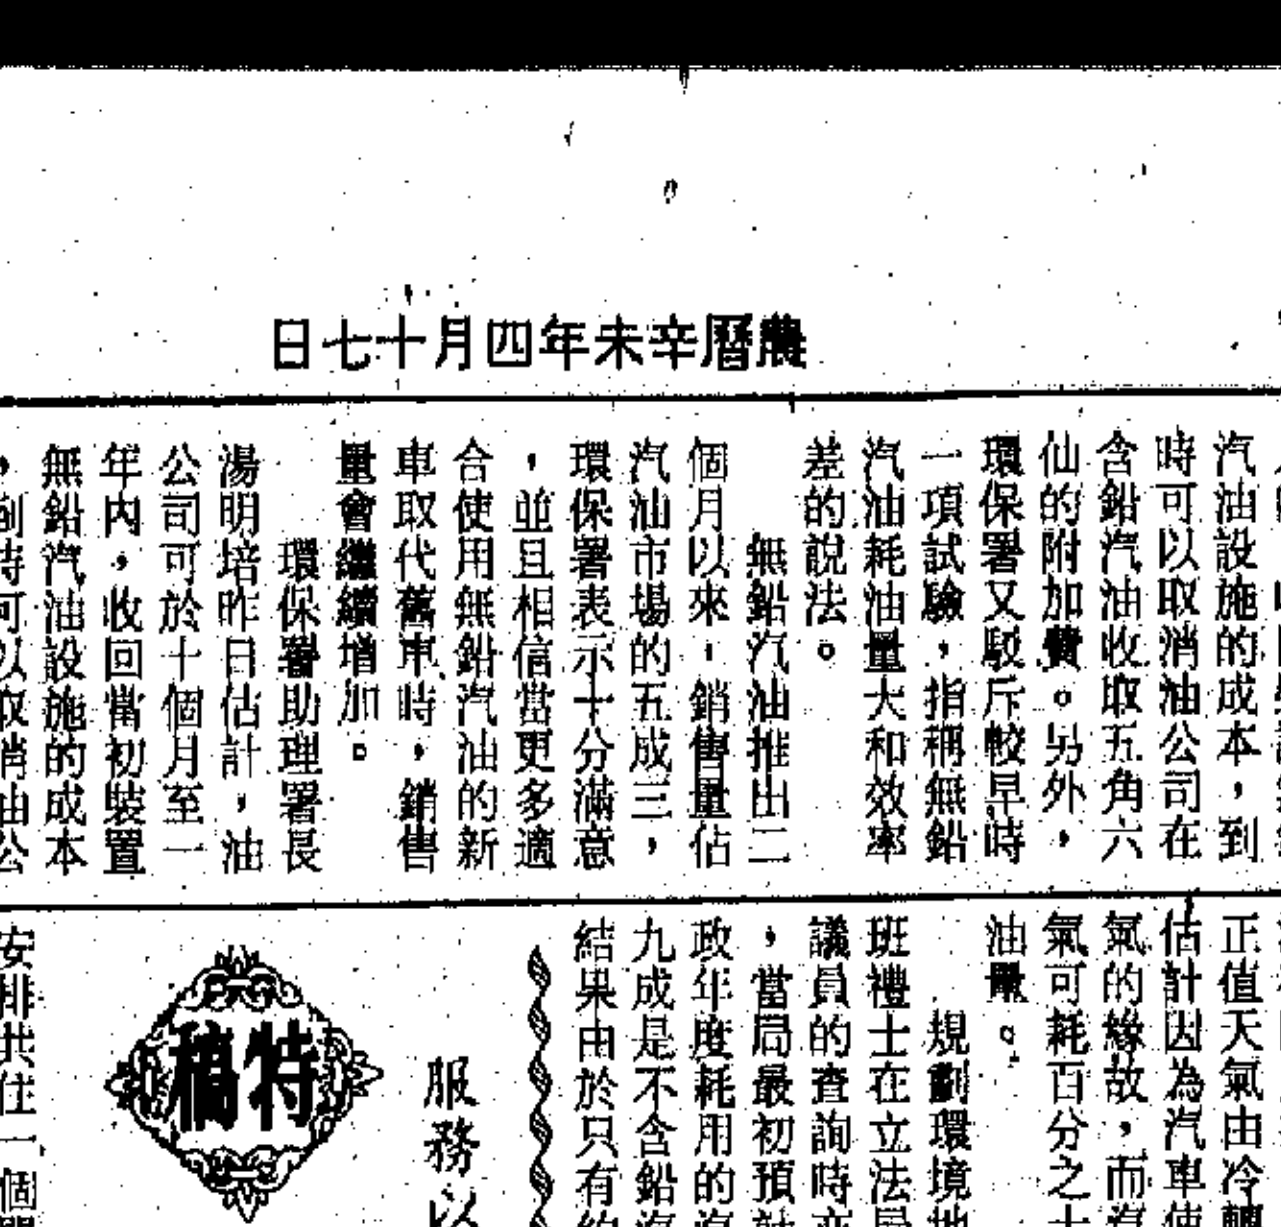 農曆辛未年四月十七日
汽油設施的成本，到
時可以取消油公司在
含鉛汽油收取五角六
仙的附加費。另外，
環保署又駁斥較早時
一項試驗，指稱無鉛
汽油耗油量大和效率
差的說法。
無鉛汽油推出二
個月以來，銷售量佔
汽油市場的五成三，
環保署表示十分滿意
，並且相信當更多適
合使用無鉛汽油的新
車取代舊車時，銷售
量會繼續增加。
環保署助理署長
湯明培昨日估計，油
公司可於十個月至一
年內，收回當初裝置
無鉛汽油設施的成本
，到時可以取消油公
正值天氣由冷轉
估計因為汽車使
氣的緣故，而汽
氣可耗百分之十
油量。
規劃環境地
班禮士在立法局
議員的查詢時亦
，當局最初預計
政年度耗用的汽
九成是不含鉛汽
結果由於只有約
服務以
特稿
安排共住一個單